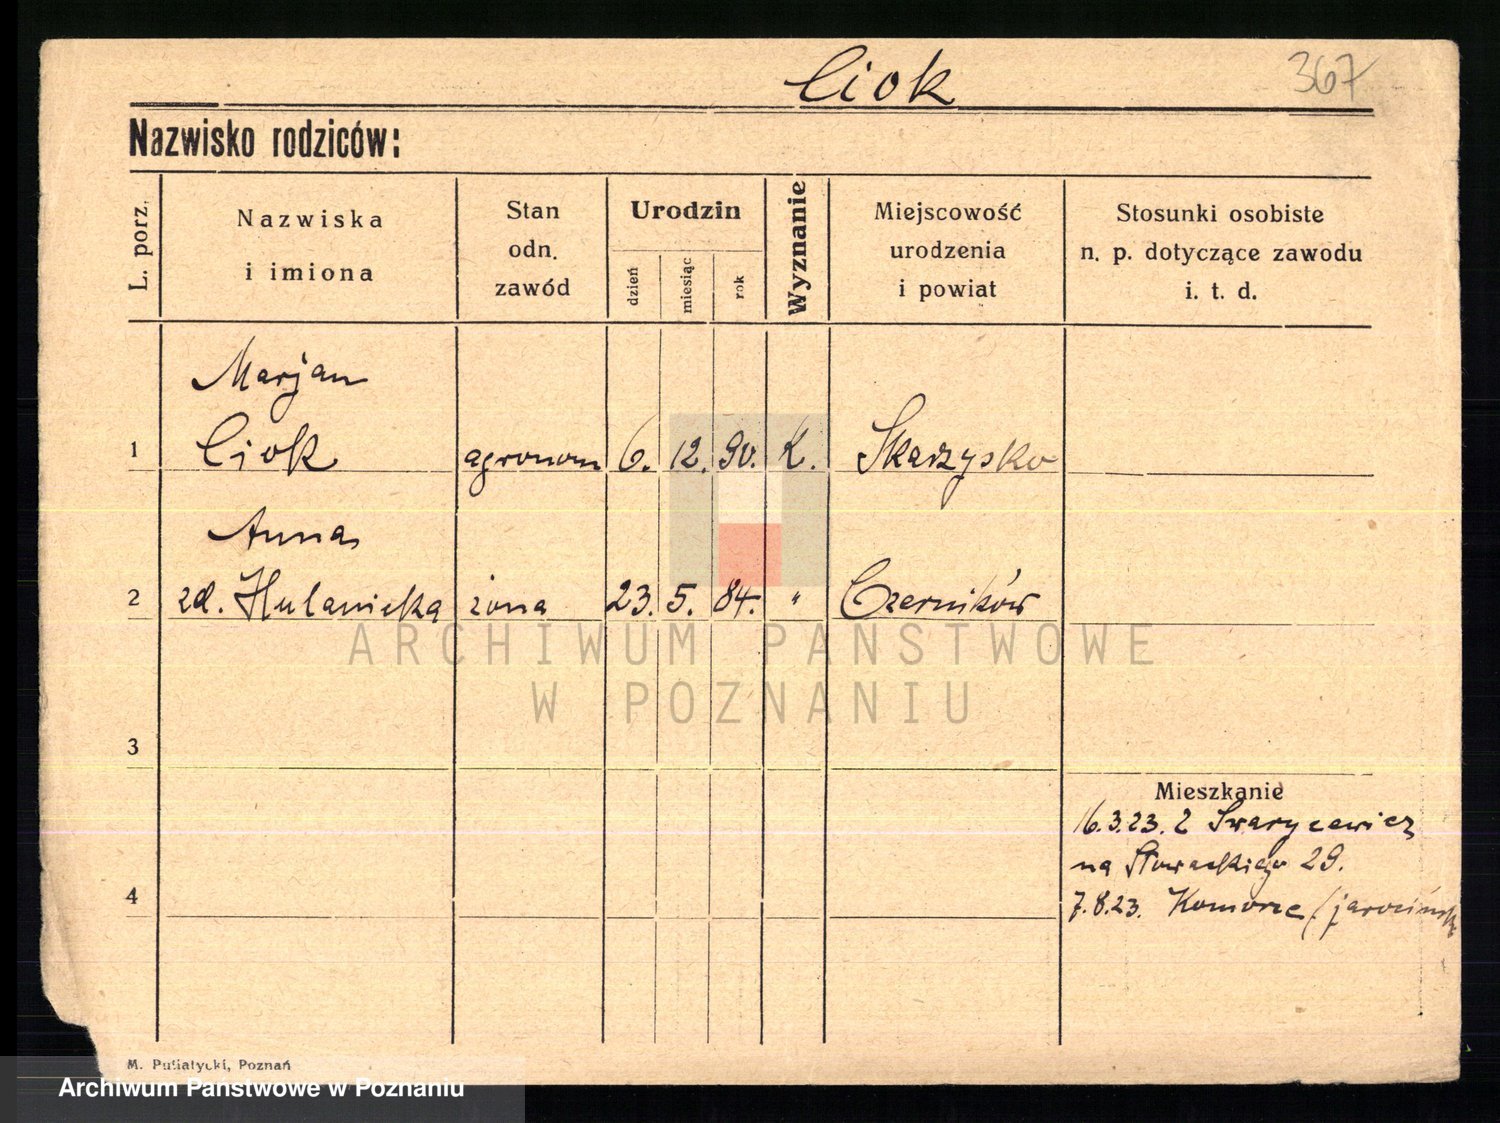 Ciok
367
Nazwisko rodziców:
L. porz.
Nazwiska
i imiona
Stan
odn.
zawód
Urodzin
dzień
miesiąc
rok
Wyznanie
Miejscowość
urodzenia
i powiat
Stosunki osobiste
n. p. dotyczące zawodu
i. t. d.
Marjan
1 Ciok agronom 6. 12. 90. K. Skarzysko
Anna
2 zd. Hulanicka żona 23. 5. 84. " Czerników
ARCHIWUM PAŃSTWOWE
W POZNANIU
3
Mieszkanie
16.3.23. z
na Słowackiego 29.
4
7.8.23. Komorze
M. Putiatycki, Poznań
Archiwum Państwowe w Poznaniu